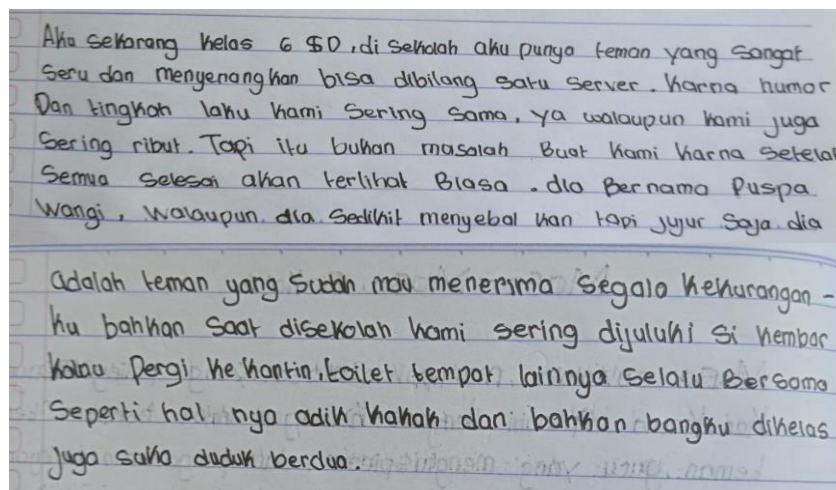 Aku sekarang kelas 6 SD, di sekolah aku punya teman yang sangat
seru dan menyenangkan bisa dibilang satu server. Karna humor
Dan tingkah laku kami sering sama, ya walaupun kami juga
sering ribut. Tapi itu bukan masalah Buat kami karna setela
semua selesai akan terlihat Biasa. dia Bernama Puspa
Wangi, walaupun dia sedikit menyebal kan tapi jujur saja dia
adalah teman yang sudah mau menerima segala kekurangan -
ku bahkan saat disekolah kami sering dijuluki si kembar
kalau pergi ke kantin, toilet tempat lainnya selalu Bersama
seperti hal nya adik kakak dan bahkan bangku dikelas
juga suka duduk berdua.